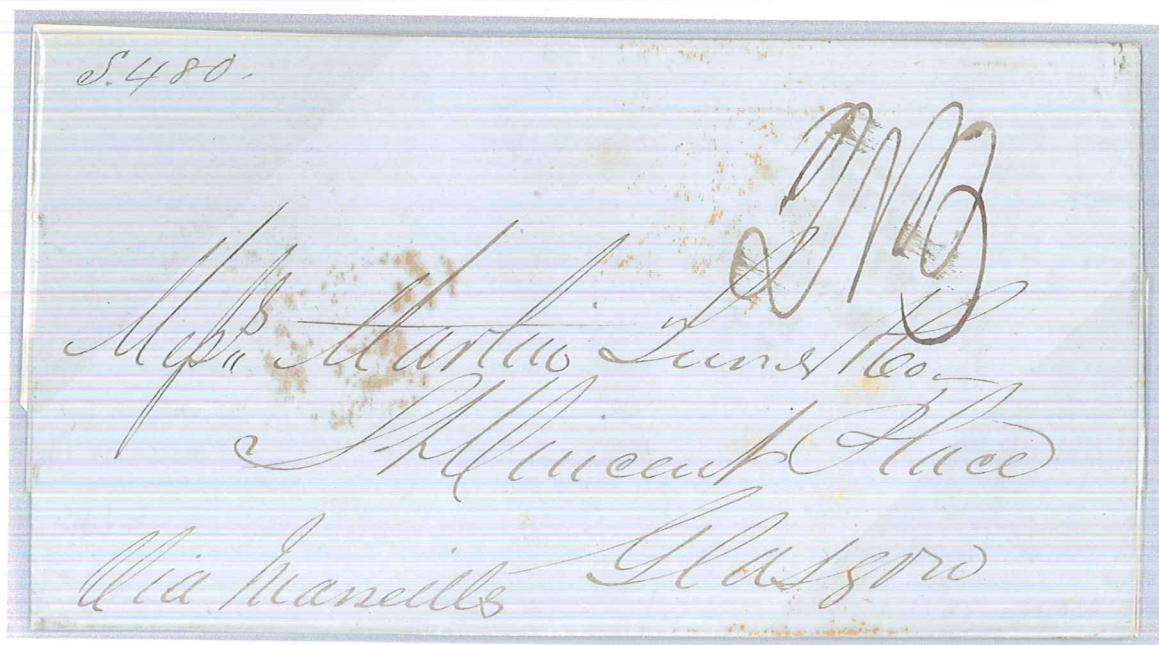 S. 480.
Messrs Martin Turner & Co.
St Vincent Place
Glasgow
Via Marseilles